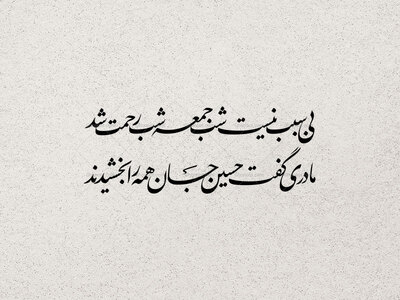 بی سبب نیست شب جمعه شب رحمت شد
مادری گفت حسین جان همه را بخشیدند